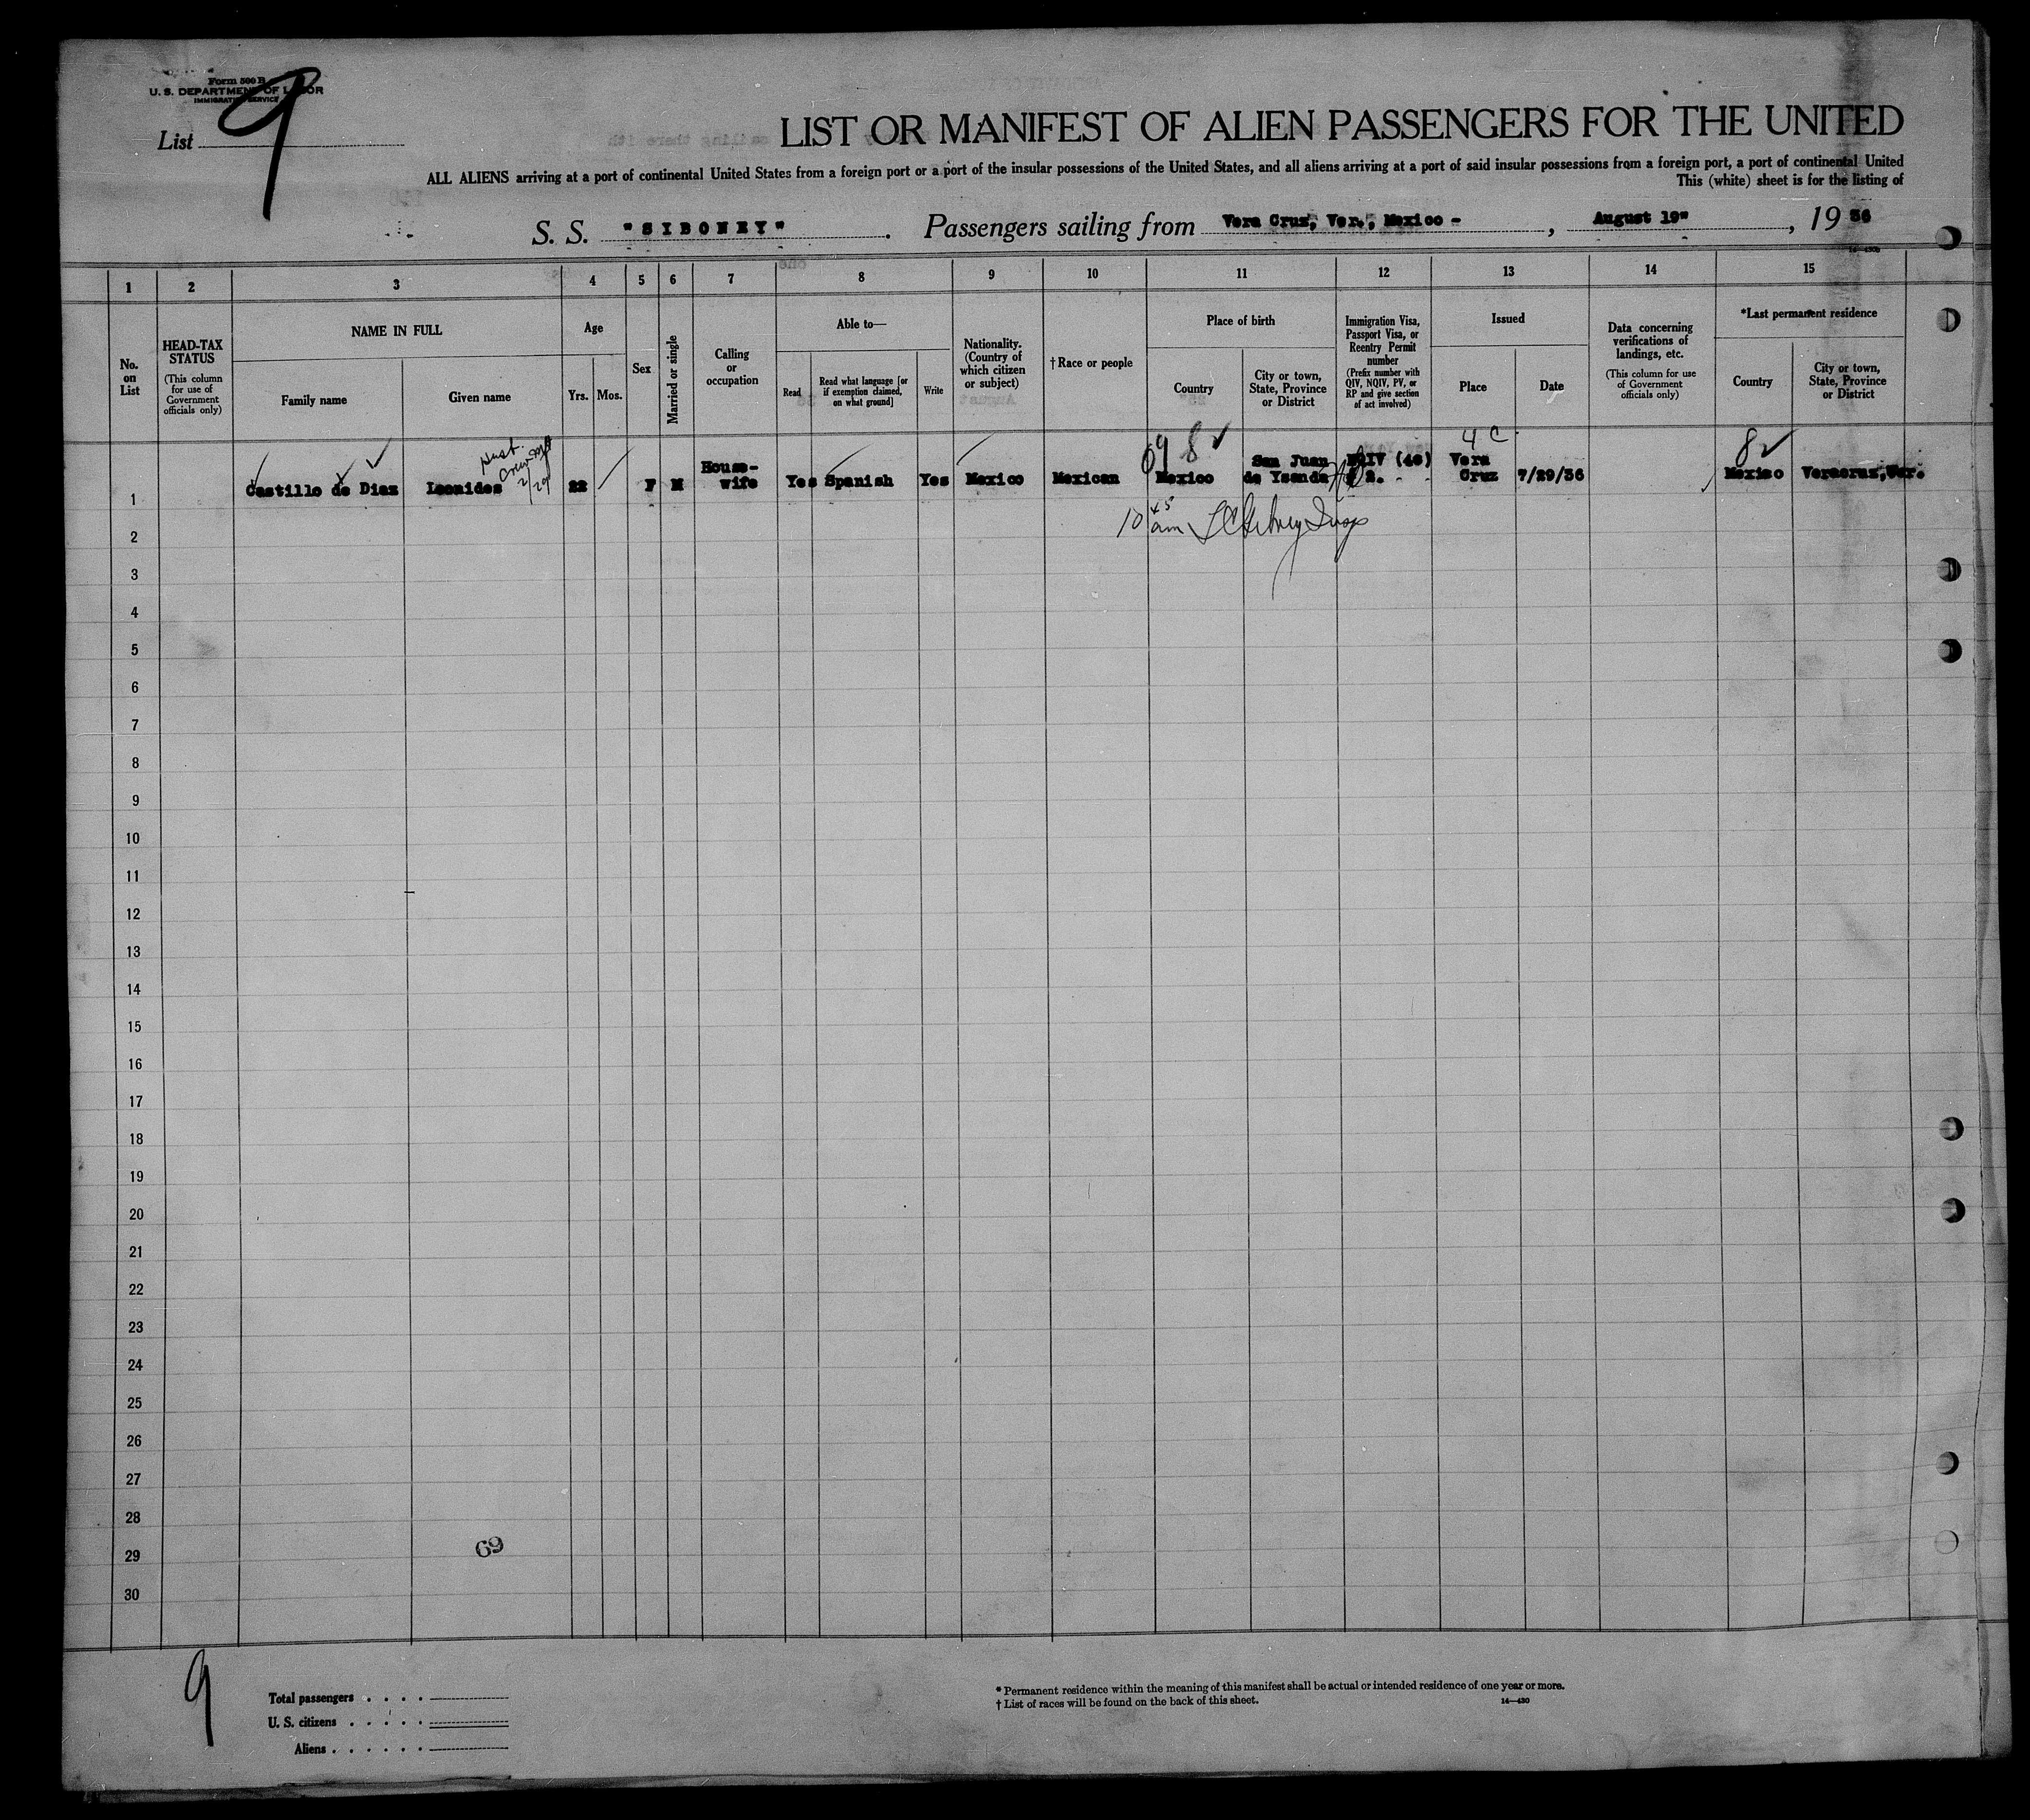 Form 500 B
U. S. DEPARTMENT OF LABOR
IMMIGRATION SERVICE
List 9
LIST OR MANIFEST OF ALIEN PASSENGERS FOR THE UNITED
ALL ALIENS arriving at a port of continental United States from a foreign port or a port of the insular possessions of the United States, and all aliens arriving at a port of said insular possessions from a foreign port, a port of continental United
This (white) sheet is for the listing of
S. S. "SIBONEY". Passengers sailing from Vera Cruz, Ver., Mexico - , August 19" , 19 36
1 2 3 4 5 6 7 8 9 10 11 12 13 14 15
No. on List
HEAD-TAX STATUS
(This column for use of Government officials only)
NAME IN FULL
Family name
Given name
Age
Yrs. Mos.
Sex
Married or single
Calling or occupation
Able to—
Read
Read what language [or if exemption claimed, on what ground]
Write
Nationality. (Country of which citizen or subject)
† Race or people
Place of birth
Country
City or town, State, Province or District
Immigration Visa, Passport Visa, or Reentry Permit number
(Prefix number with QIV, NQIV, PV, or RP and give section of act involved)
Issued
Place
Date
Data concerning verifications of landings, etc.
(This column for use of Government officials only)
*Last permanent residence
Country
City or town, State, Province or District
69 8 4 C 8
1 Castillo de Diaz Leonides 22 F M House-wife Yes Spanish Yes Mexico Mexican Mexico San Juan de Ysanda NQIV (46) Vera Cruz 7/29/36 Mexico Veracruz, Ver.
10 45 am
2
3
4
5
6
7
8
9
10
11
12
13
14
15
16
17
18
19
20
21
22
23
24
25
26
27
28
29
30
69
9
Total passengers . . . .
U. S. citizens . . . . .
Aliens . . . . . .
* Permanent residence within the meaning of this manifest shall be actual or intended residence of one year or more.
† List of races will be found on the back of this sheet.
14—430